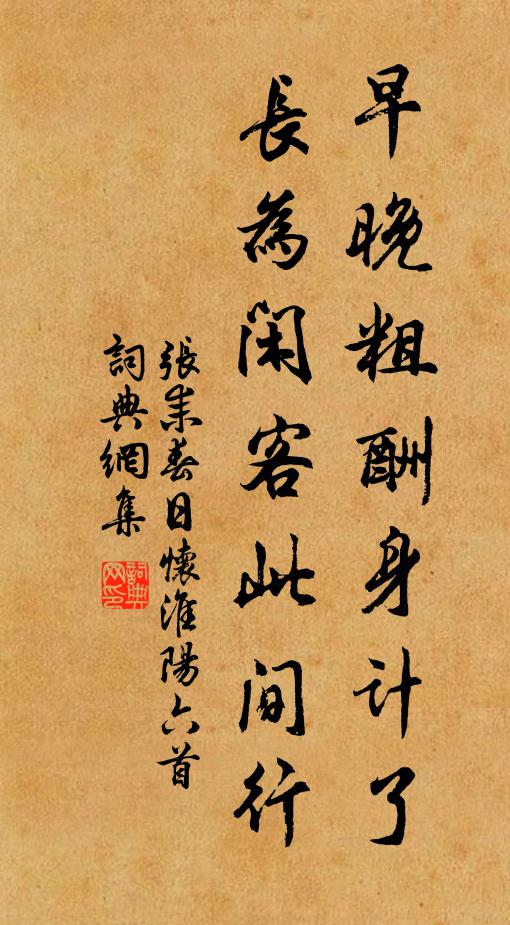 早晚粗酬身計了
長為閑客此間行
張耒春日懷淮陽六首
詞典網集
詞典
网印